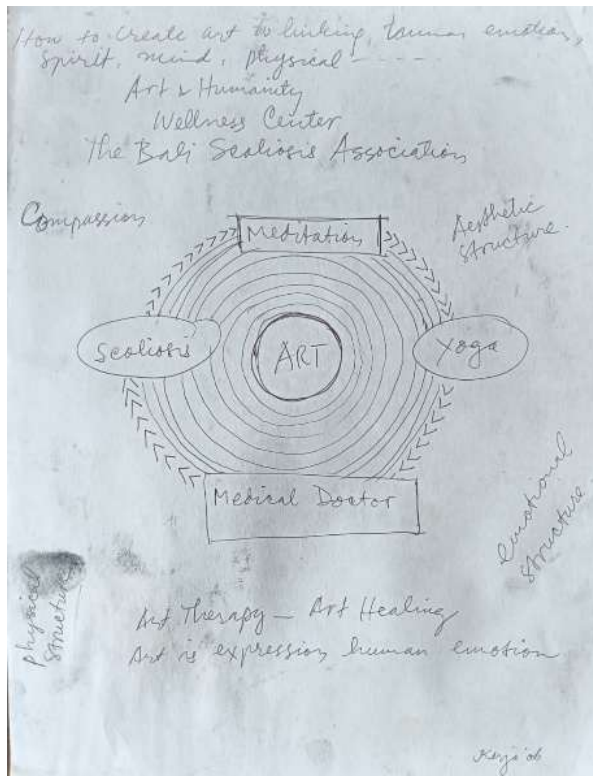 How to create art to linking, trauma, emotion,
spirit, mind, physical - - - - -
Art & Humanity
Wellness Center
The Bali Scoliosis Association
Compassion
Aesthetic
structure.
Meditation
Scoliosis
ART
Yoga
Medical Doctor
emotional
structure.
Physical
structure
Art Therapy – Art Healing
Art is expression human emotion